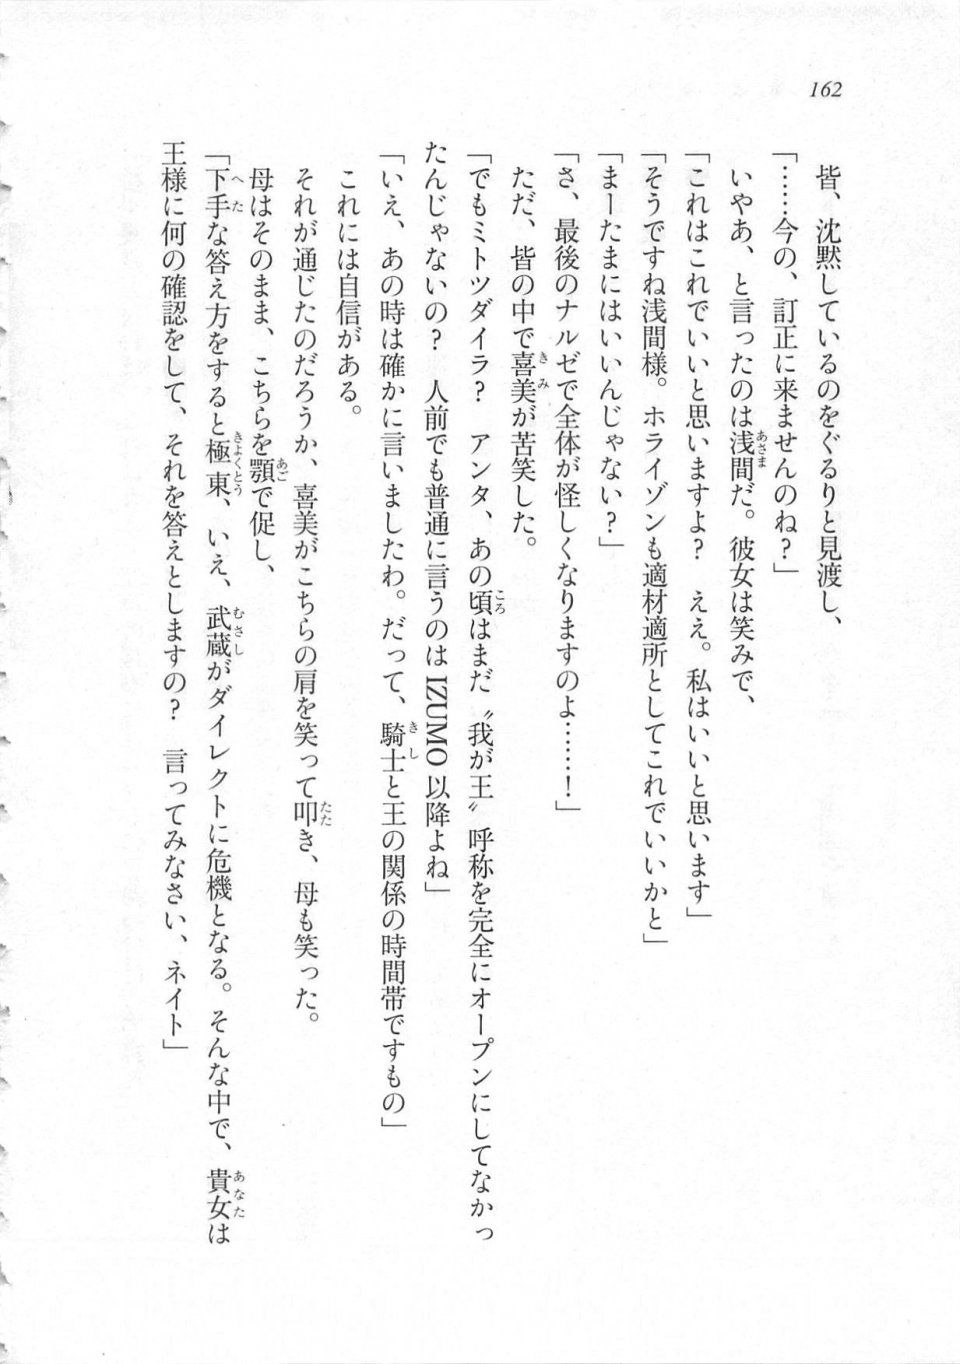 162
皆、沈黙しているのをぐるりと見渡し、
「……今の、訂正に来ませんのね？」
いやあ、と言ったのは浅間だ。彼女は笑みで、
「これはこれでいいと思いますよ？　ええ。私はいいと思います」
「そうですね浅間様。ホライゾンも適材適所としてこれでいいかと」
「まーたまにはいいんじゃない？」
「さ、最後のナルゼで全体が怪しくなりますのよ……！」
ただ、皆の中で喜美が苦笑した。
「でもミトツダイラ？　アンタ、あの頃はまだ〝我が王〟呼称を完全にオープンにしてなかっ
たんじゃないの？　人前でも普通に言うのはIZUMO以降よね」
「いえ、あの時は確かに言いましたわ。だって、騎士と王の関係の時間帯ですもの」
これには自信がある。
それが通じたのだろうか、喜美がこちらの肩を笑って叩き、母も笑った。
母はそのまま、こちらを顎で促し、
「下手な答え方をすると極東、いえ、武蔵がダイレクトに危機となる。そんな中で、貴女は
王様に何の確認をして、それを答えとしますの？　言ってみなさい、ネイト」